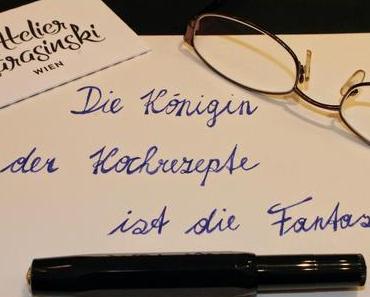 Atelier
arasinski
WIEN
Die Königin
der Kochrezepte
ist die Fantas